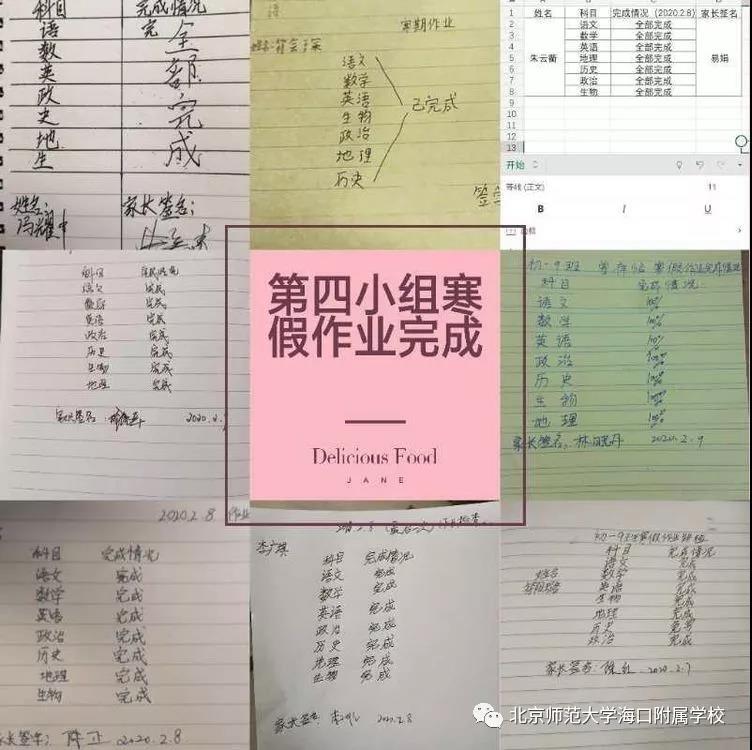 科目 完成情况
语 完
数 全
英 部
政 完
史 成
地
生
姓名: 家长签名:
冯耀中
寒期作业
姓名:
语文
数学
英语
生物
政治
地理
历史
已完成
姓名 科目 完成情况(2020.2.8) 家长签名
朱云蘅 语文 全部完成 易娟
数学 全部完成
英语 全部完成
地理 全部完成
历史 全部完成
政治 全部完成
生物 全部完成
开始
等线 (正文) 11
B I U
科目 完成情况
语文 完成
数学 完成
英语 完成
政治 完成
历史 完成
生物 完成
地理 完成
家长签名: 2020.2.
第四小组寒
假作业完成
Delicious Food
JANE
初一9班 寒假作业完成情况
科目 完成情况
语文 100%
数学 100%
英语 100%
政治 100%
历史 100%
生物 100%
地理 100%
家长签名: 林晓丹 2020.2.9
2020.2.8 作业
科目 完成情况
语文 完成
数学 完成
英语 完成
政治 完成
历史 完成
地理 完成
生物 完成
家长签字: 陈正 2020.2.8
科目 完成情况
语文 完成
数学 完成
英语 完成
政治 完成
历史 完成
地理 完成
生物 完成
家长签名: 2020.2.8
初一9班寒假作业
科目 完成情况
语文 完成
姓名 数学 完成
英语 完成
生物 完成
地理 完成
历史
政治 完成
家长签名: 2020.2.7
北京师范大学海口附属学校